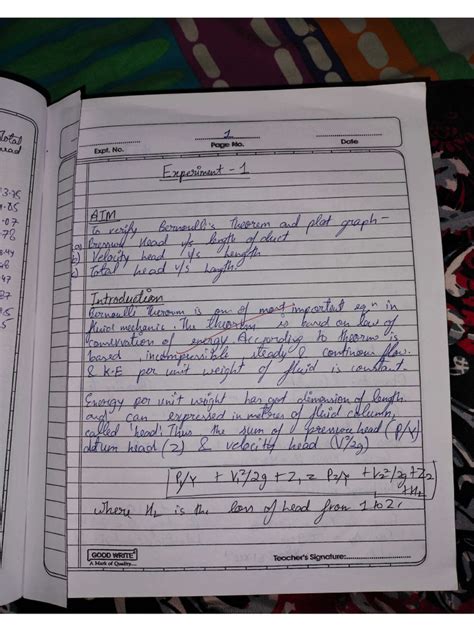 Total
head
3.75
4.05
.07
.78
3.44
68
.47
.87
.5
Expt. No.
1
Page No.
Date
Experiment - 1
AIM
To verify Bernoulli's Theorem and plot graph-
a) Pressure Head v/s length of duct
b) Velocity head v/s length
c) Total head v/s length.
Introduction
Bernoulli Theorem is one of most important eqn in
fluid mechanic. The theorem is based on law of
conservation of energy. According to theorem is
based incompressible, steady & continous flow.
& K.E per unit weight of fluid is constant.
Energy per unit weight has got dimension of length
and can expressed in metres of fluid column,
called 'head'. Thus the sum of pressure head (P/γ)
datum head (z) & velocity head (V²/2g)
P₁/γ + V₁²/2g + Z₁ = P₂/γ + V₂²/2g + Z₂
+ HL
where HL is the loss of head from 1 to 2.
GOOD WRITE
A Mark of Quality....
Teacher's Signature: